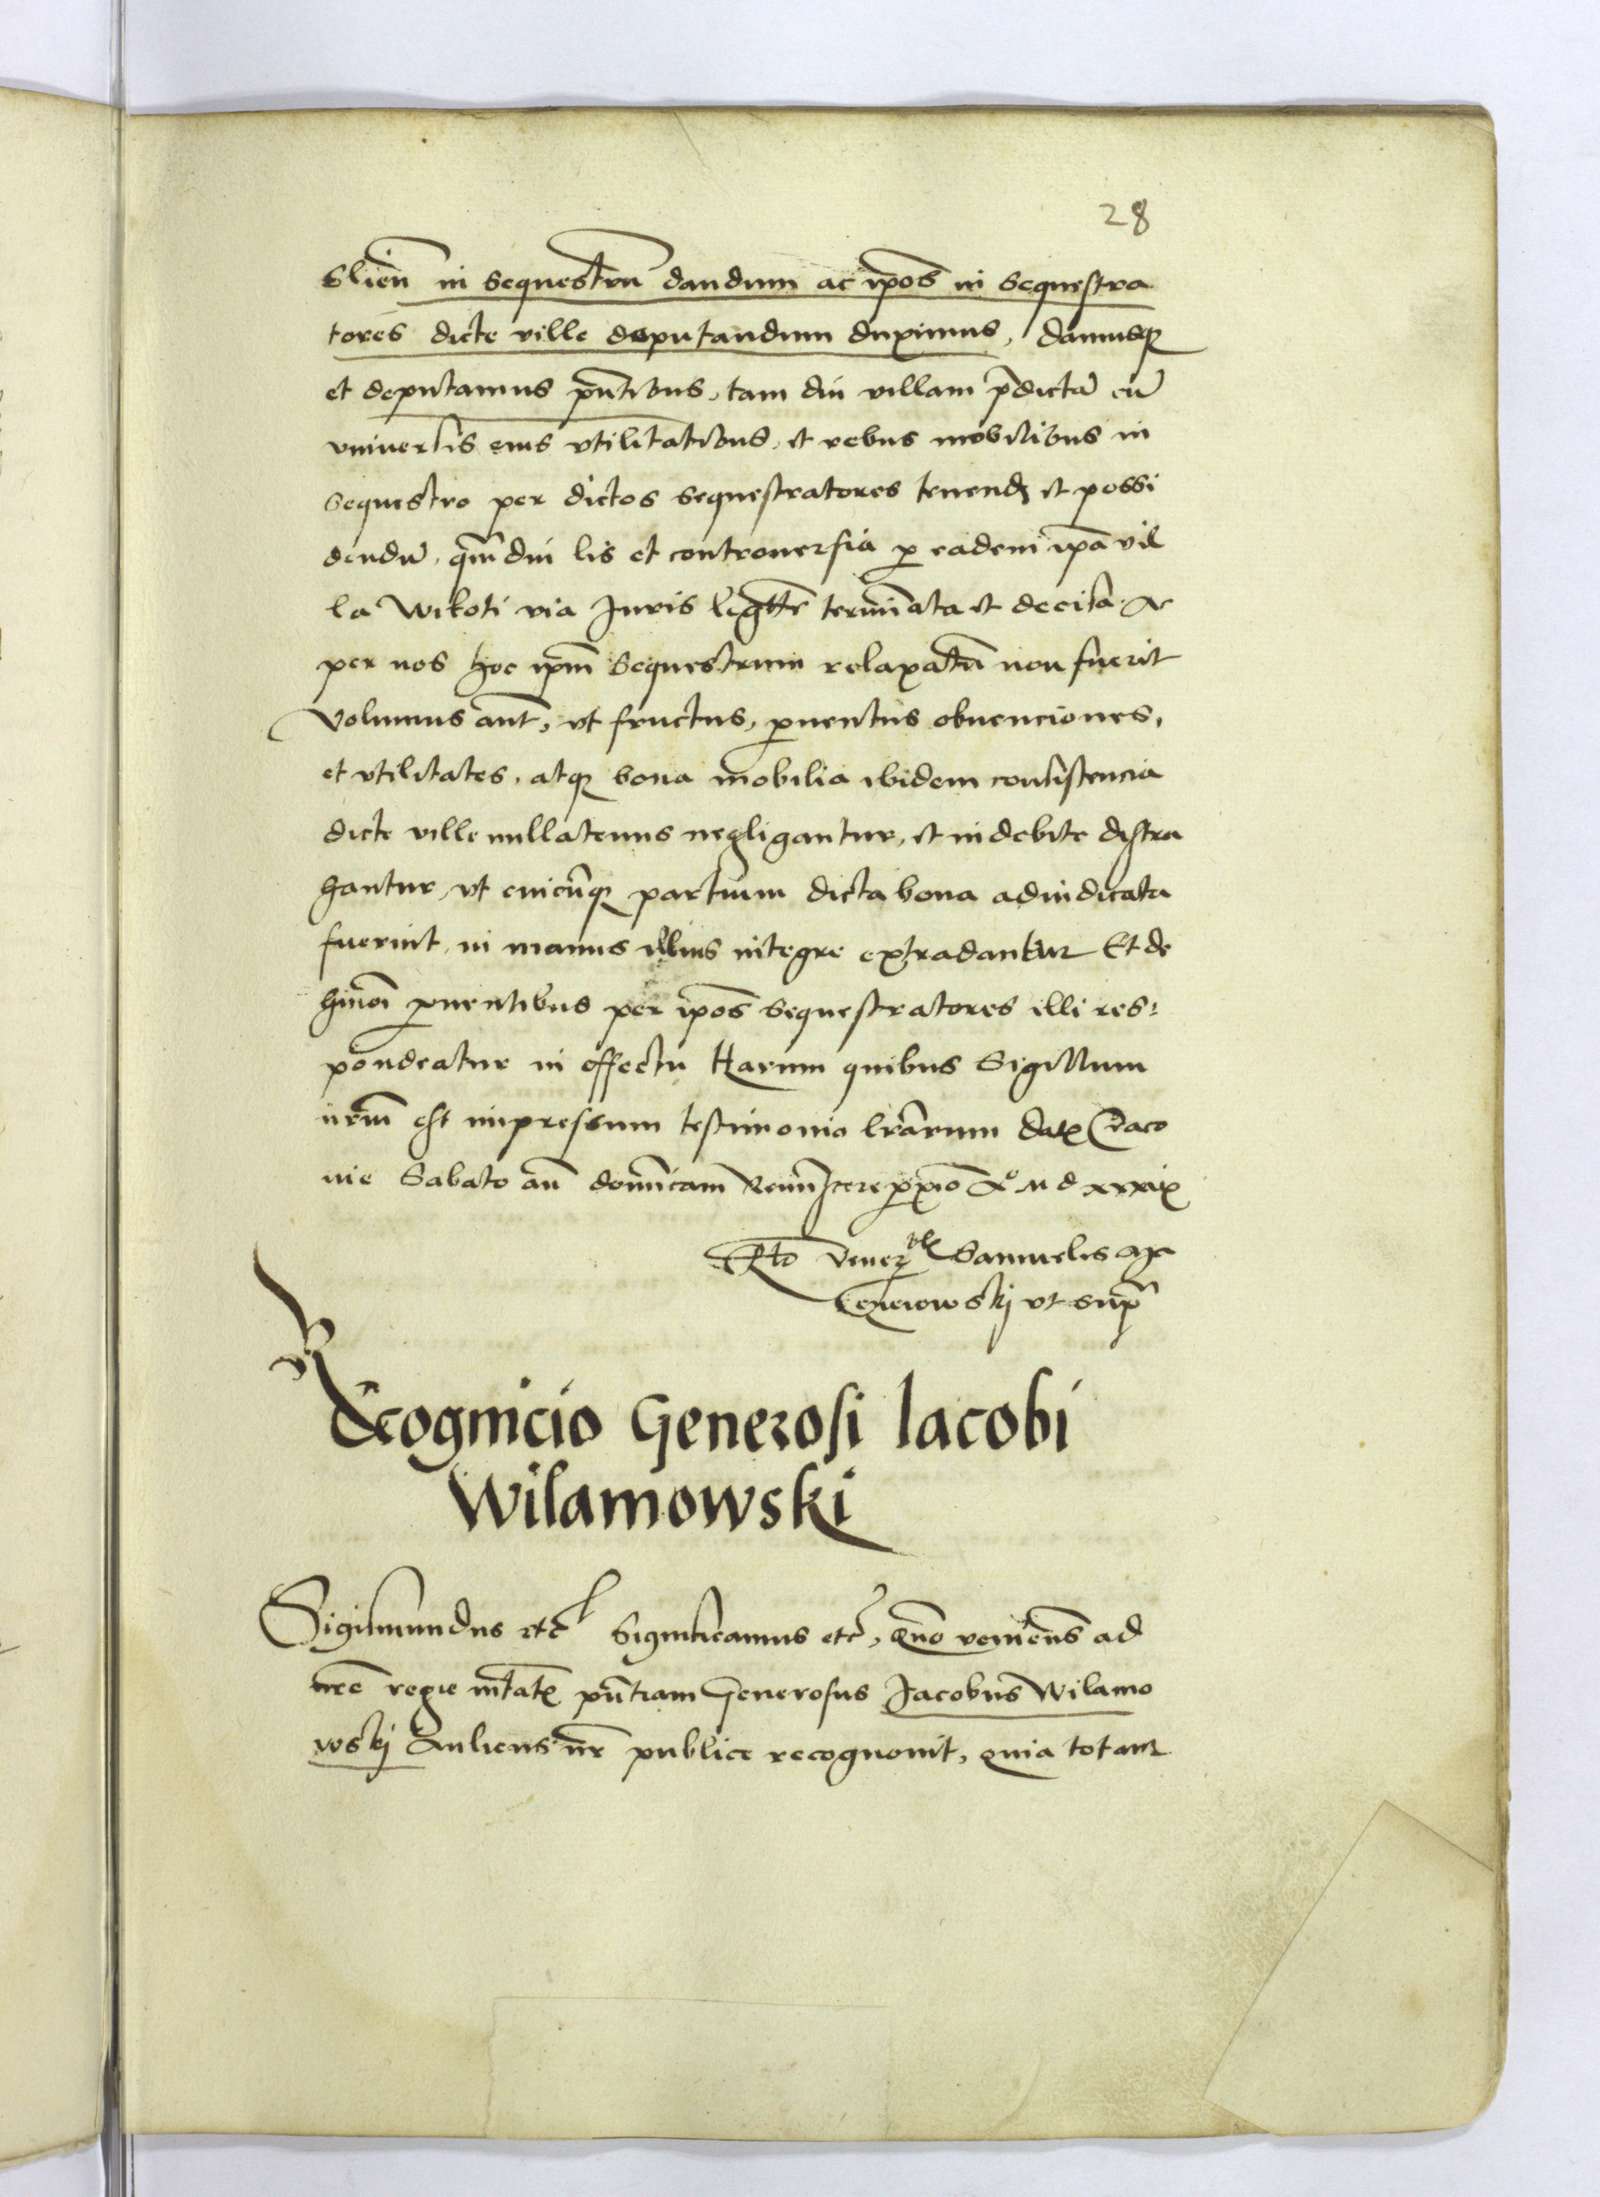 28
slieñ in sequestrũ dandum ac ip̃os in sequestra
tores dicte ville deputandum duximus, damusq
et deputamus p̃ntibus, tam diu villam p̃dictã cũ
vniuersis eius vtilitatibus, et rebus mobilibus in
sequestro per dictos sequestratores tenend et possi
dendũ, qm̃diu lis et controuersia p eadem ip̃a vil
la Wikoti via Iuris leg̃ttẽ termĩata et decisa Ac
per nos hoc ip̃m sequestrum relaxatũ non fuerit
Volumus aut̃, vt fructus, puentus obuenciones,
et vtilitates, atq bona mobilia ibidem consistencia
dicte ville nullatenus negligantur, et indebite distra
hantur, vt cuicũq partium dicta bona adiudicata
fuerint, in manus illius integre extradantur Et de
hm̃oi puentibus per ip̃os sequestratores illi res:
pondeatur in effectu Harum quibus Sigillum
nr̃m est impressum testimonio lr̃arum Dat Craco
uie Sabato añ domĩcam Remĩscere pxiõ Aº M d xxxix
Rto Vener bl Samuelis
vt sup̃
Recognicio Generosi Iacobi
Wilamowski
Sigismundus etc̃ Significamus etc̃, Quõ veniens ad
nr̃e regie mtat̃ p̃ntiam Generosus Jacobus Wilamo
wskj Auliens nr̃ publice recognouit, quia totam